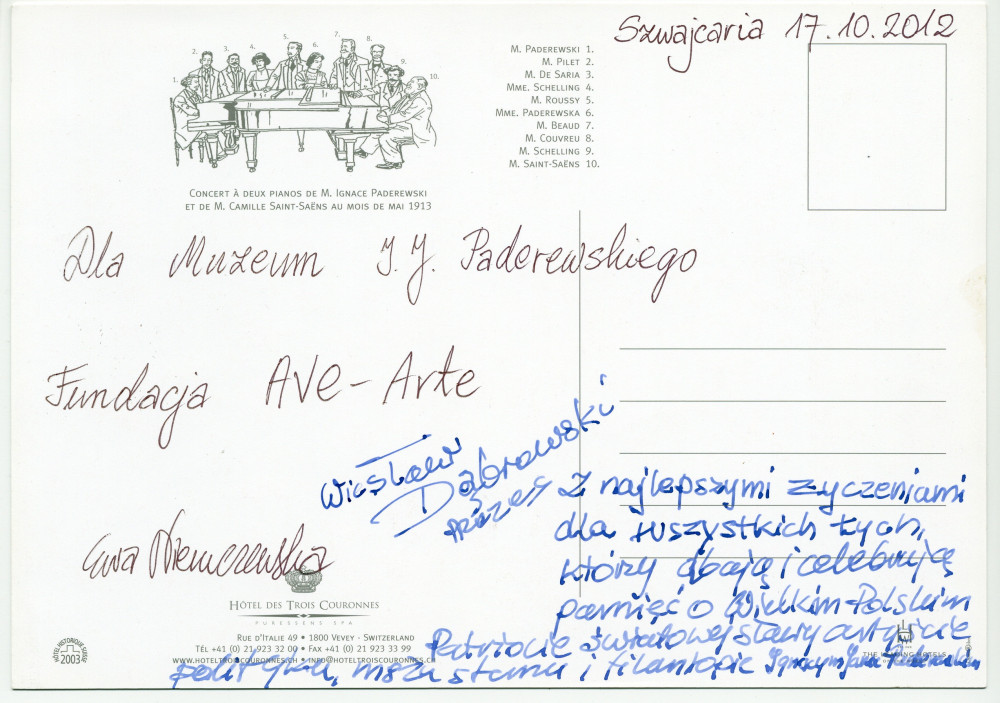 Szwajcaria 17.10.2012
1. 2. 3. 4. 5. 6. 7. 8. 9. 10.
M. PADEREWSKI 1.
M. PILET 2.
M. DE SARIA 3.
MME. SCHELLING 4.
M. ROUSSY 5.
MME. PADEREWSKA 6.
M. BEAUD 7.
M. COUVREU 8.
M. SCHELLING 9.
M. SAINT-SAËNS 10.
CONCERT À DEUX PIANOS DE M. IGNACE PADEREWSKI
ET DE M. CAMILLE SAINT-SAËNS AU MOIS DE MAI 1913
Dla Muzeum I. J. Paderewskiego
Fundacja AVE-Arte
Wiesław
Dąbrowski
prezes
Ewa
Z najlepszymi życzeniami
dla wszystkich tych,
którzy dbają i celebrują
pamięć o Wielkim Polskim
Patriocie światowej sławy artyście
polityku, mężu stanu i filantropie Ignacym Janie Paderewskim
HÔTEL DES TROIS COURONNES
PURESSENS SPA
RUE D'ITALIE 49 • 1800 VEVEY - SWITZERLAND
TÉL +41 (0) 21 923 32 00 • FAX +41 (0) 21 923 33 99
WWW.HOTELTROISCOURONNES.CH • INFO@HOTELTROISCOURONNES.CH
2003